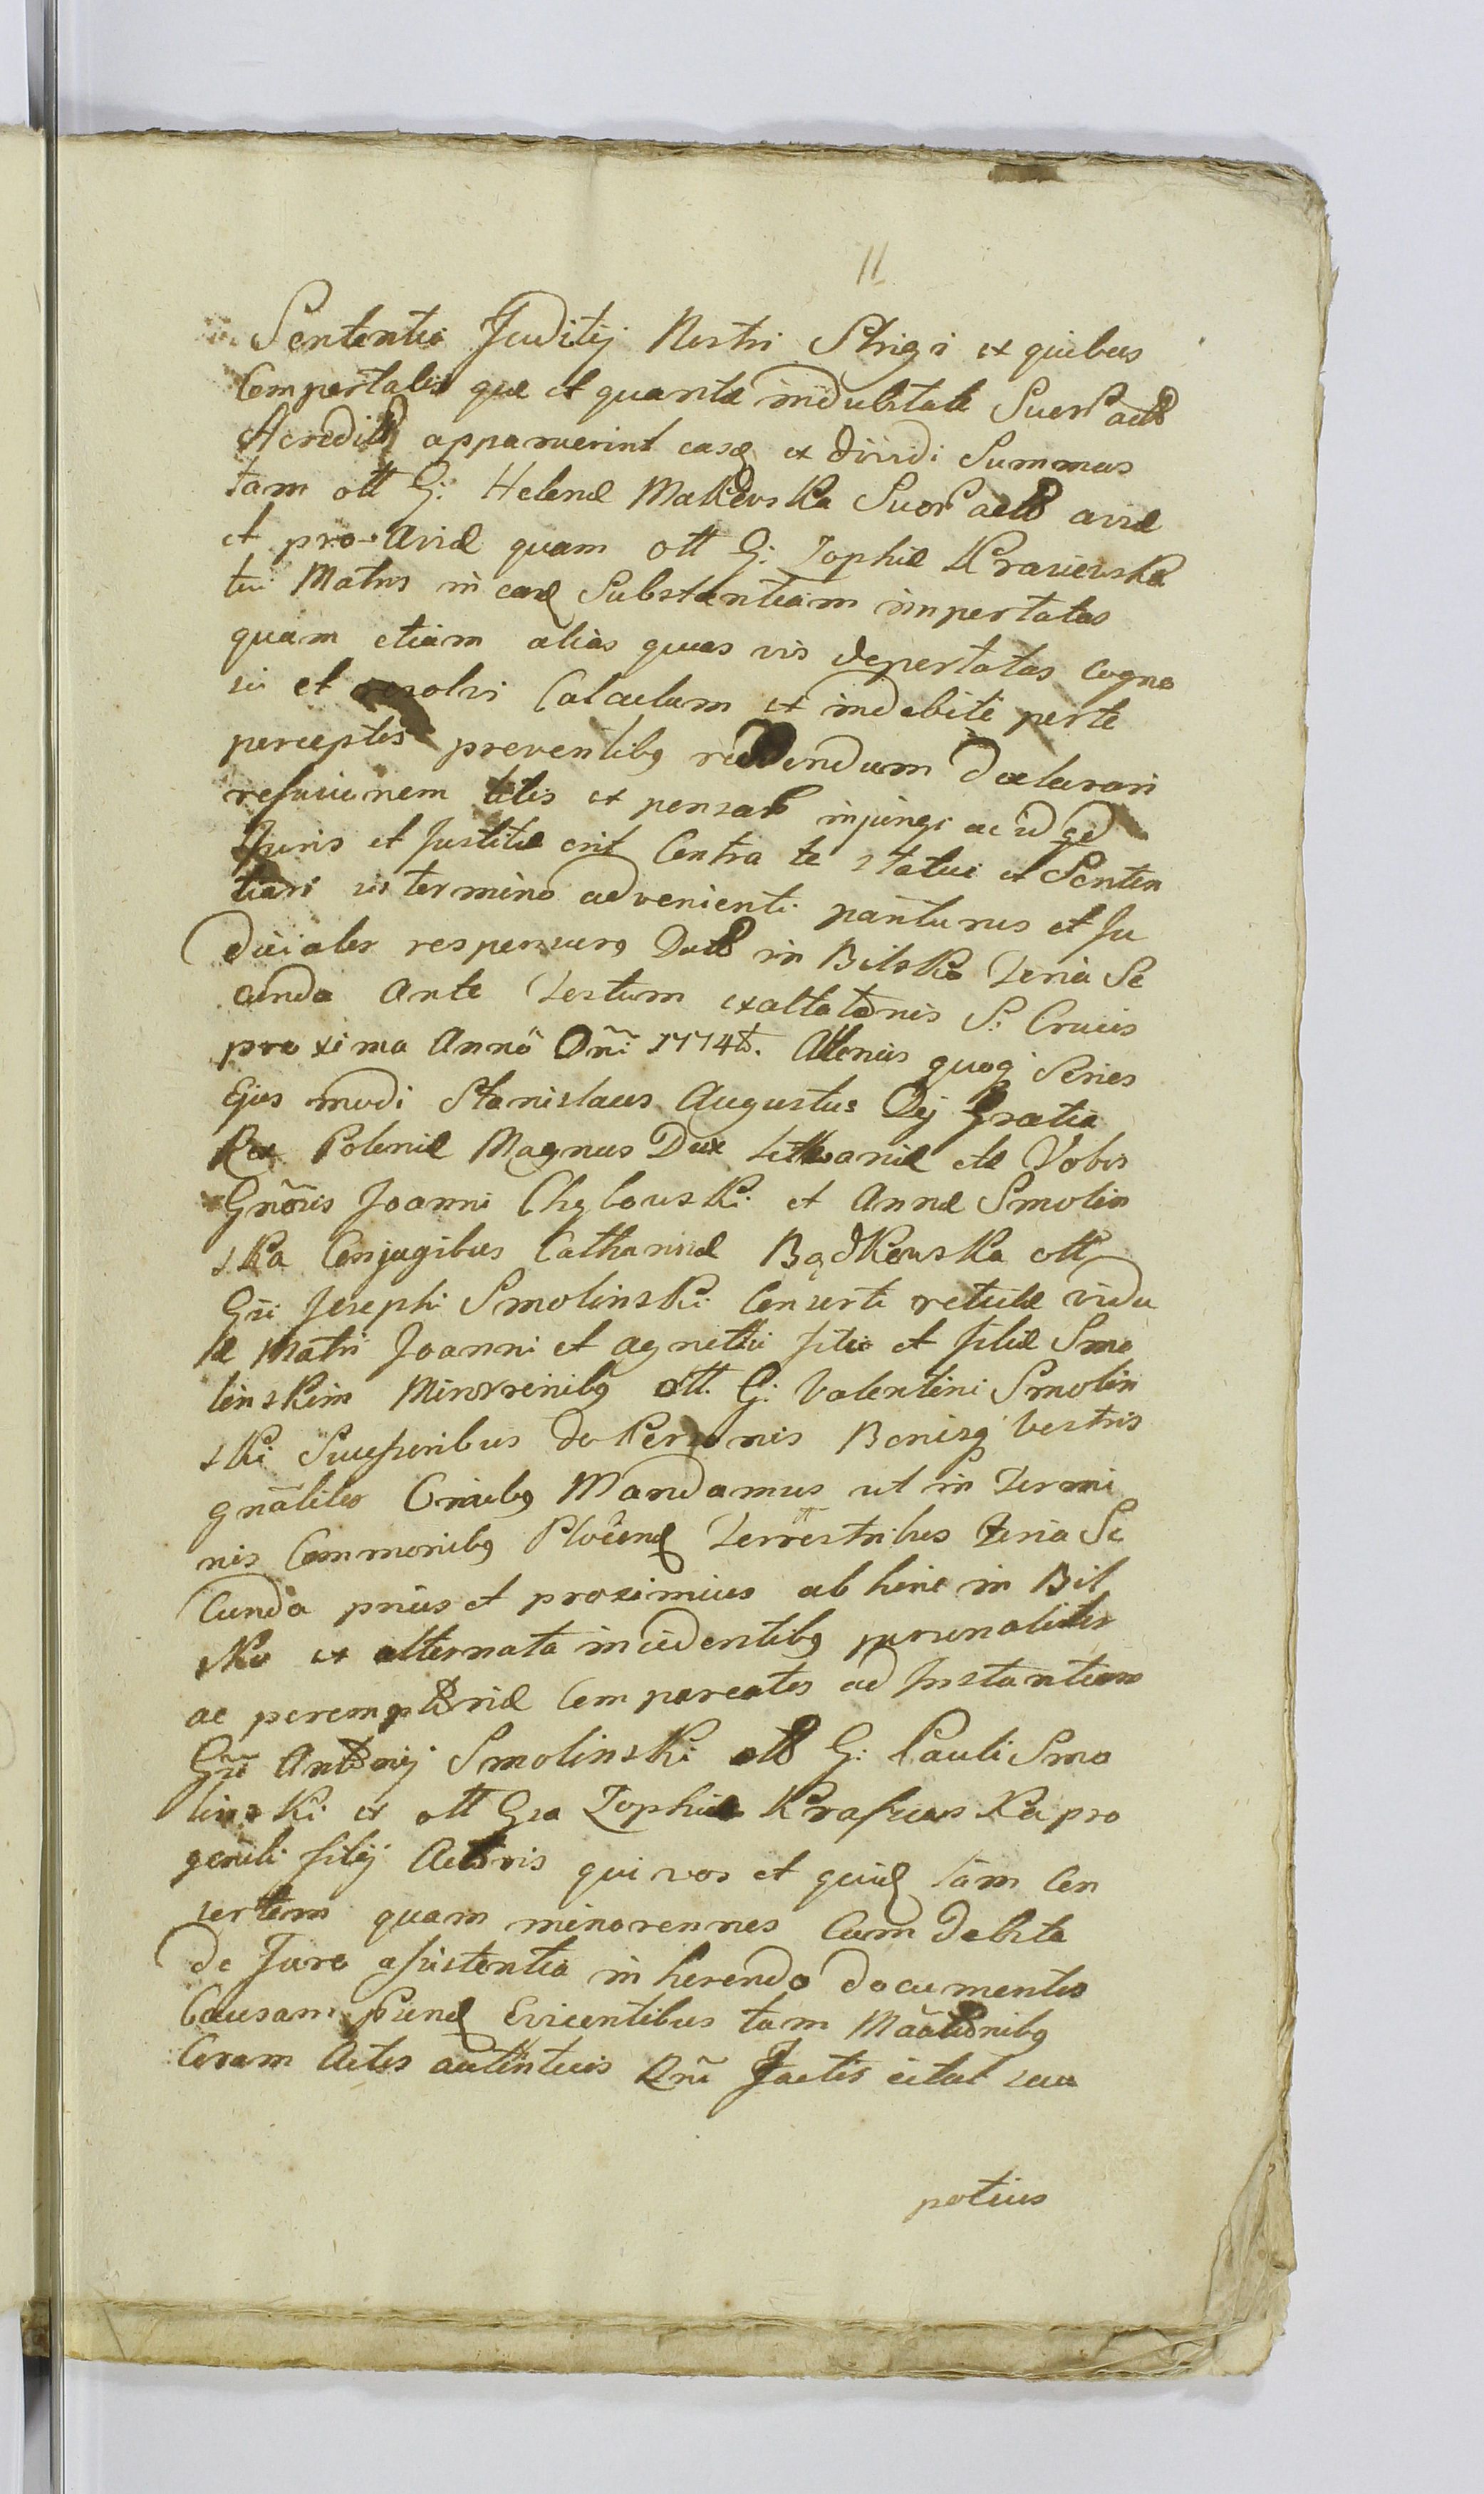 11
Sententia Juditij Nostri Strigi ex quibus
Comportatis quæ et quanta indubitate
apparuerint easq ex dividi Summas
tam olt G: Helenæ Makowska aviæ
et pro-Aviæ quam olt G: Zophiæ Krasiewska
tui Matris in eadq Substantiam importatas
quam etiam alias quas vis deportatas Cogno
sci et resolvi Calculum ex indebite per te
perceptis proventibq reddendum declarari
refusionem litis ex pensarũ injungi ac id qd
Juris et Justitiæ erit Contra te statui et Senten
tiari sis termino advenienti pariturus et Ju
dicialer responsurq Datt in Bilsko Feria Se
cunda Ante Festum exaltatõnis S: Crucis
proxima Annõ Dñi 1774tõ. Alterius quoq Series
Ejus modi Stanislaus Augustus Dej Gratia
Rex Poloniæ Magnus Dux Lithvaniæ etc Vobis
Gnõris Joanni Chylowski et Annæ Smolin
ska Conjugibus Catharinæ Bądkowska olt
Gsi Josephi Smolinski Consorti relictæ vidu
æ Matri Joanni et Agnethi filio et filiæ Smo
linskim Minorrenibq olt. G: Valentini Smolin
ski Sucessoribus de Personis Bonisq vestris
gnãliter Oñiubq Mandamus ut in Termi
nis Commonibq Plocensq Terrestribus Feria Se
Cunda prius et proximius ab hinc in Bil
sko ex alternata incidentibq personaliter
ac peremptoriæ Compareatis ad Instantiam
Gñi Antonij Smolinski olt G: Pauli Smo
linski ex olt Gsa Zophia Krassews Ka pro
geniti filij Actoris qui vos et quidq tam Con
sortem quam minorennes Cum debita
de Jure assistentia inherendo documentis
Causam Evicentibus tam Mãtionibq
Coram Actis autenticis Rñi Factis citat seu
potius